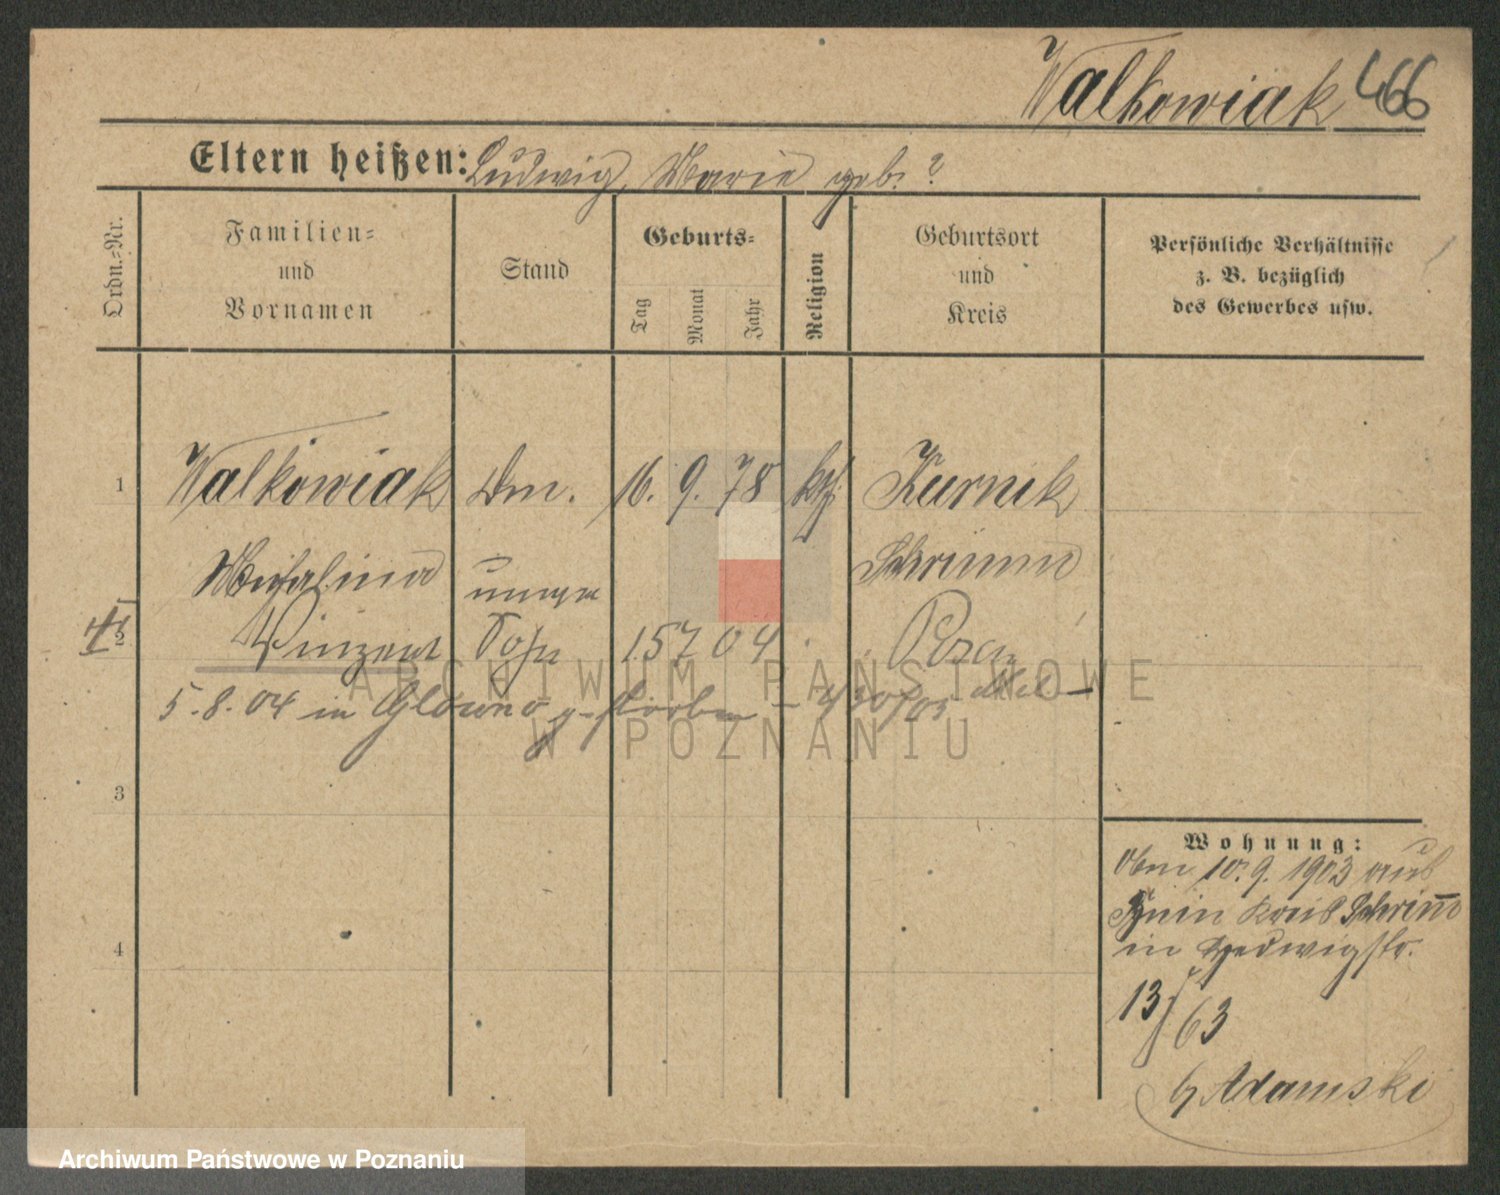 Walkowiak 466
Eltern heißen: Ludwig, Marie geb. ?
Ordn.-Nr.
Familien-
und
Vornamen
Stand
Geburts-
Tag
Monat
Jahr
Religion
Geburtsort
und
Kreis
Persönliche Verhältnisse
z. B. bezüglich
des Gewerbes usw.
1 Walkowiak Dm. 16. 9. 78 kth. Kurnik
Michalina Schrimm
2 Vinzent Sohn 15 7 04 Posen
5. 8. 04 in Glowno gestorben
3
4
Wohnung:
10. 9. 1903 aus
Kreis Schrimm
in Hedwigstr.
13/63
b/ Adamski
ARCHIWUM PAŃSTWOWE
W POZNANIU
Archiwum Państwowe w Poznaniu